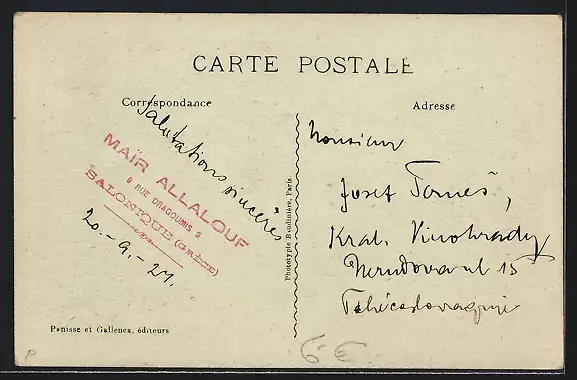 CARTE POSTALE
Correspondance
Adresse
Salutations sincères
MAÏR ALLALOUF
9 RUE DRAGOUMIS 9
SALONIQUE (GRÈCE)
20.-9.-21.
Monsieur
Josef Tomeš,
Kral. Vinohrady
Nerudova ul 15
Tchécoslovaquie
Phototypie Baudinière, Paris.
Panisse et Gallenca, éditeurs
6 €
P